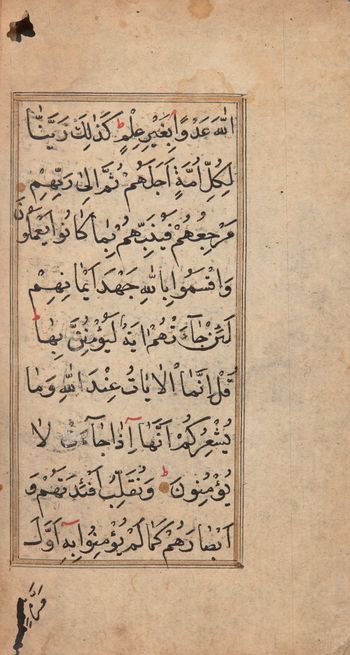 اللّٰهَ عَدْوًا بِغَيْرِ عِلْمٍ كَذٰلِكَ زَيَّنَّا
لِكُلِّ اُمَّةٍ اَجَلَهُمْ ثُمَّ اِلٰى رَبِّهِمْ
مَرْجِعُهُمْ فَيُنَبِّئُهُمْ بِمَا كَانُوا يَعْمَلُونَ
وَاَقْسَمُوا بِاللّٰهِ جَهْدَ اَيْمَانِهِمْ
لَئِنْ جَآءَتْهُمْ اٰيَةٌ لَيُؤْمِنُنَّ بِهَا
قُلْ اِنَّمَا الْاٰيَاتُ عِنْدَ اللّٰهِ وَمَا
يُشْعِرُكُمْ اَنَّهَا اِذَا جَآءَتْ لَا
يُؤْمِنُونَ وَنُقَلِّبُ اَفْئِدَتَهُمْ وَ
اَبْصَارَهُمْ كَمَا لَمْ يُؤْمِنُوا بِهِ اَوَّلَ